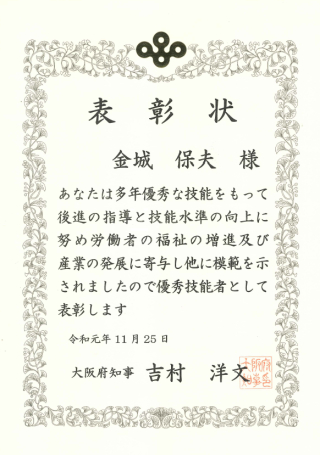 表彰状
金城 保夫 様
あなたは多年優秀な技能をもって
後進の指導と技能水準の向上に
努め労働者の福祉の増進及び
産業の発展に寄与し他に模範を示
されましたので優秀技能者として
表彰します
令和元年11月25日
大阪府知事 吉村 洋文